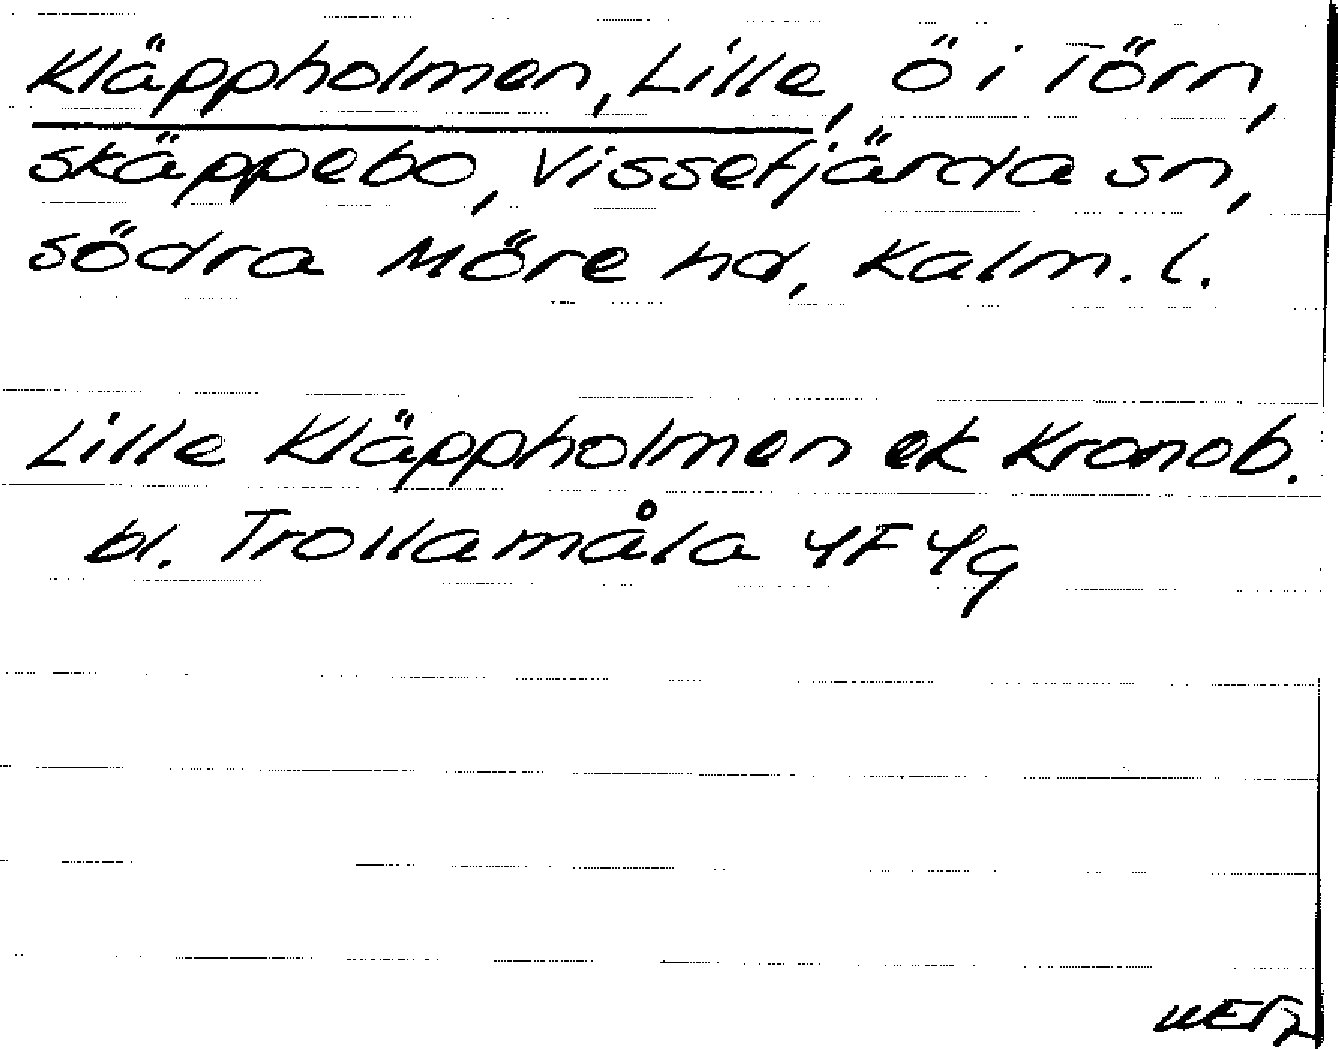 Kläppholmen, Lille, ö i Törn,
skäppebo, Vissefjärda sn,
södra Möre hd, Kalm. l.
Lille Kläppholmen ek Kronob.
bl. Trollamåla 4F 4g